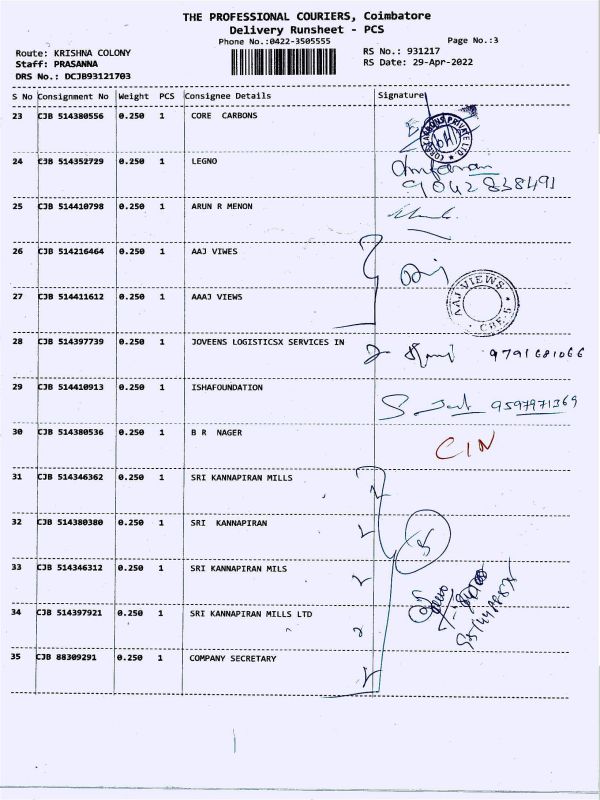 THE PROFESSIONAL COURIERS, Coimbatore
Delivery Runsheet - PCS
Phone No.:0422-3505555 Page No.:3
Route: KRISHNA COLONY RS No.: 931217
Staff: PRASANNA RS Date: 29-Apr-2022
DRS No.: DCJB93121703
S No Consignment No Weight PCS Consignee Details Signature
23 CJB 514380556 0.250 1 CORE CARBONS
24 CJB 514352729 0.250 1 LEGNO
9042838491
25 CJB 514410798 0.250 1 ARUN R MENON
26 CJB 514216464 0.250 1 AAJ VIWES
AAJ VIEWS
CBE-5
27 CJB 514411612 0.250 1 AAAJ VIEWS
28 CJB 514397739 0.250 1 JOVEENS LOGISTICSX SERVICES IN 9791681066
29 CJB 514410913 0.250 1 ISHAFOUNDATION 9597971369
30 CJB 514380536 0.250 1 B R NAGER CIN
31 CJB 514346362 0.250 1 SRI KANNAPIRAN MILLS
32 CJB 514380380 0.250 1 SRI KANNAPIRAN 5
33 CJB 514346312 0.250 1 SRI KANNAPIRAN MILS
34 CJB 514397921 0.250 1 SRI KANNAPIRAN MILLS LTD
35 CJB 88309291 0.250 1 COMPANY SECRETARY